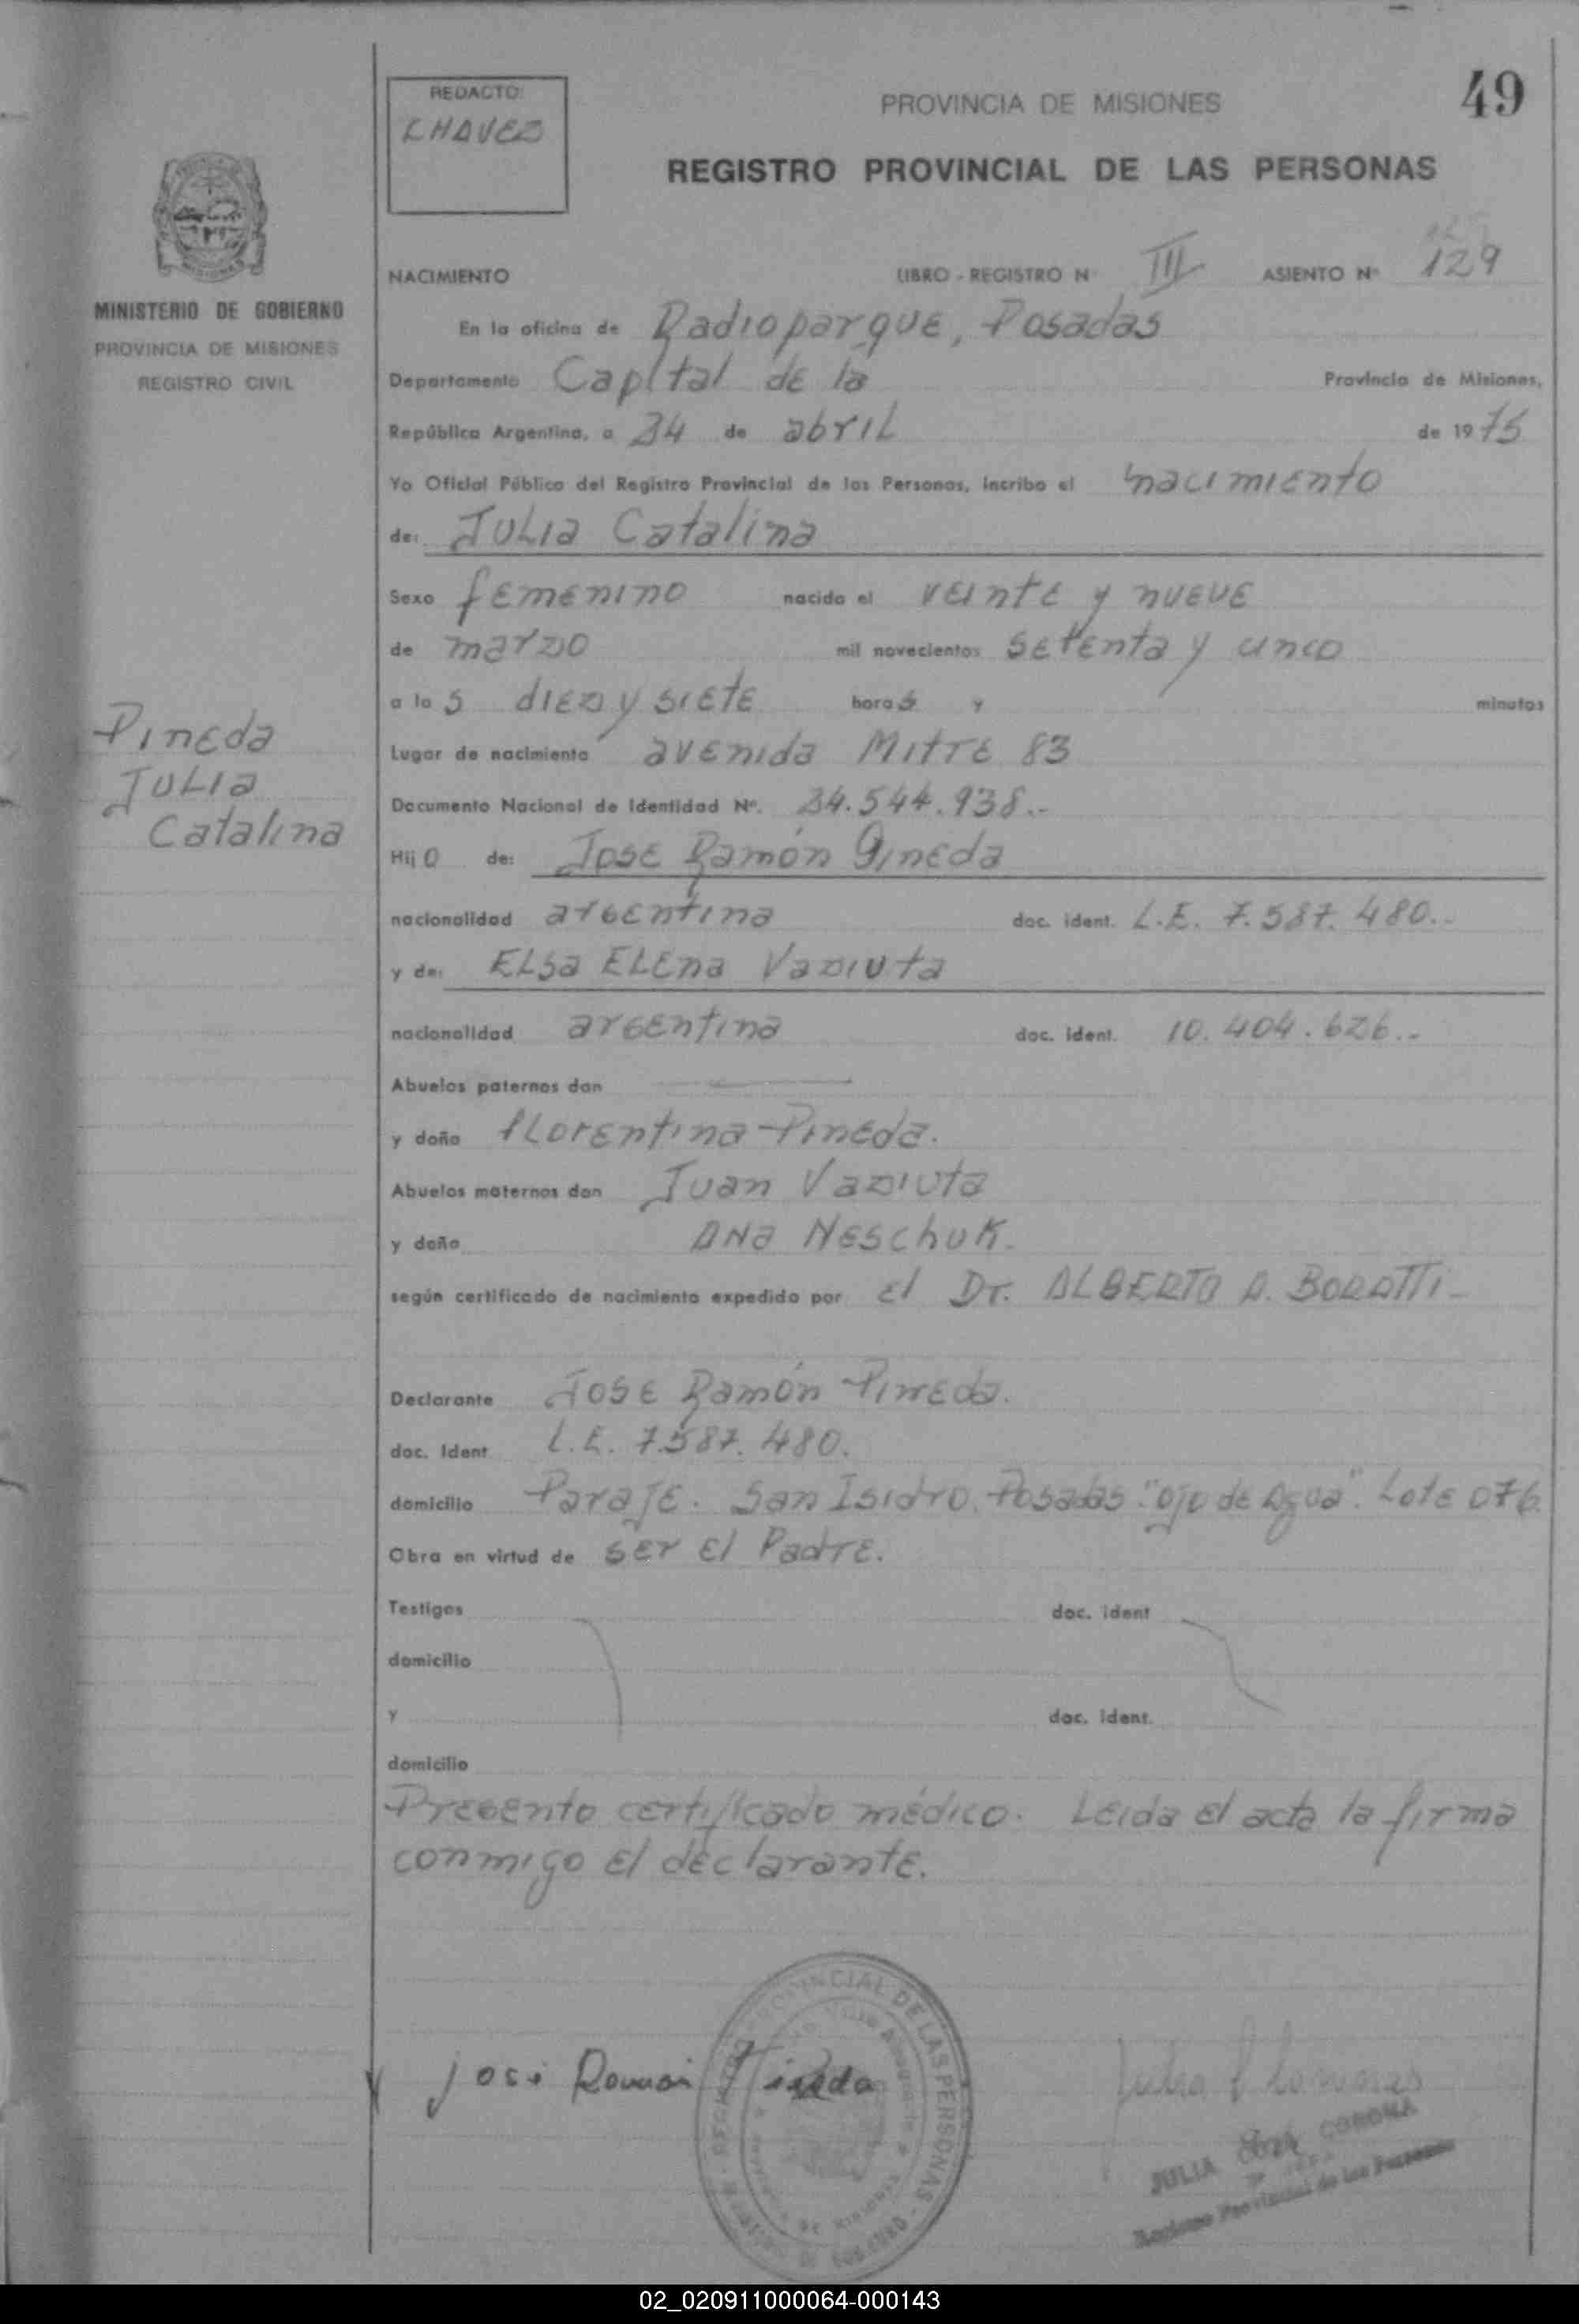 REDACTO:
CHAVEZ
PROVINCIA DE MISIONES
49
REGISTRO PROVINCIAL DE LAS PERSONAS
MINISTERIO DE GOBIERNO
PROVINCIA DE MISIONES
REGISTRO CIVIL
NACIMIENTO LIBRO - REGISTRO Nº III ASIENTO Nº 129
En la oficina de Radioparque, Posadas
Departamento Capital de la Provincia de Misiones,
República Argentina, a 24 de abril de 1975
Yo Oficial Público del Registro Provincial de las Personas, incribo el nacimiento
de: Julia Catalina
Sexo femenino nacido el veinte y nueve
de marzo mil novecientos setenta y cinco
a las diez y siete horas y minutos
Pineda
Julia
Catalina
Lugar de nacimiento avenida Mitre 83
Documento Nacional de Identidad Nº. 24.544.938.-
Hijo de: Jose Ramón Pineda
nacionalidad argentina doc. ident. L.E. 7.587.480..
y de: Elsa Elena Vaziuta
nacionalidad argentina doc. ident. 10.404.626.-
Abuelos paternos don
y doña Florentina Pineda.
Abuelos maternos don Juan Vaziuta
y doña Ana Neschuk.
según certificado de nacimiento expedido por el Dr. ALBERTO A. BORATTI-
Declarante Jose Ramón Pineda.
doc. Ident L.E. 7.587.480.
domicilio Paraje. San Isidro. Posadas "ojo de Agua". Lote 076.
Obra en virtud de ser el Padre.
Testigos doc. ident
domicilio
y doc. ident.
domicilio
Presento certificado médico. Leida el acta la firma
conmigo el declarante.
José Ramon Pineda
JULIA CORONA
Registro Provincial de las Personas
PROVINCIAL DE LAS PERSONAS
02_020911000064-000143